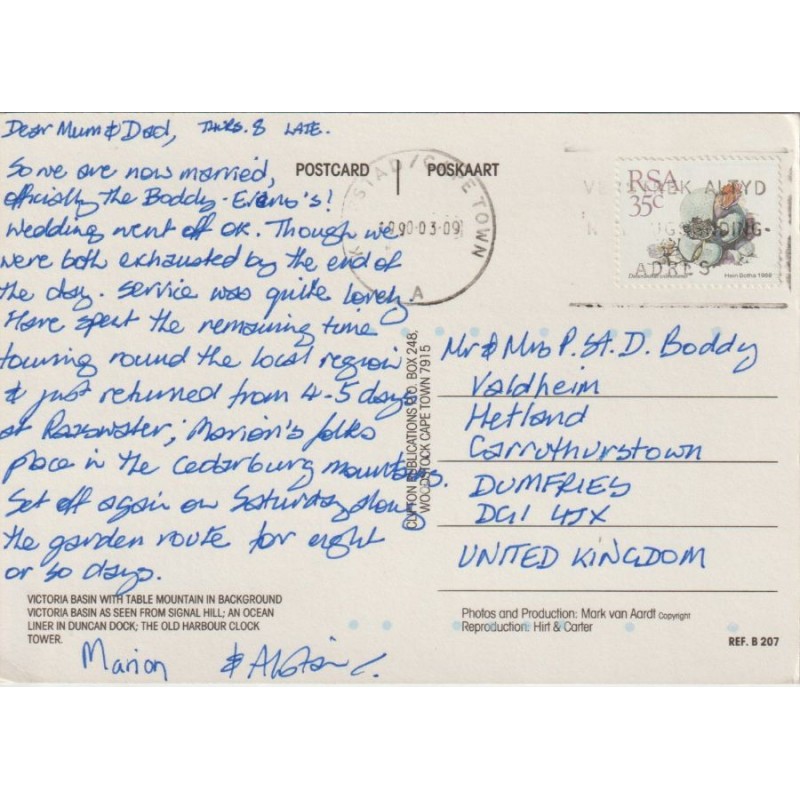 Dear Mum & Dad, THURS. 8 LATE.
So we are now married,
officially the Boddy-Evans's!
Wedding went off OK. Though we
were both exhausted by the end of
the day. Service was quite lovely
Have spent the remaining time
touring round the local region
& just returned from 4-5 days
at Marion's folks
place in the Cedarburg mountains.
Set off again on Saturday along
the garden route for eight
or so days.
VICTORIA BASIN WITH TABLE MOUNTAIN IN BACKGROUND
VICTORIA BASIN AS SEEN FROM SIGNAL HILL; AN OCEAN
LINER IN DUNCAN DOCK; THE OLD HARBOUR CLOCK
TOWER.
Marion & Alistair
POSTCARD
POSKAART
CLIFTON PUBLICATIONS P.O. BOX 248,
WOODSTOCK CAPE TOWN 7915
KAAPSTAD/CAPE TOWN
1990-03-09
A
ALTYD
ADRES
RSA
35c
Hein Botha 1988
Mr & Mrs P. St. D. Boddy
Valdheim
Hetland
Carruthurstown
DUMFRIES
DG1 4JX
UNITED KINGDOM
Photos and Production: Mark van Aardt Copyright
Reproduction: Hirt & Carter
REF. B 207